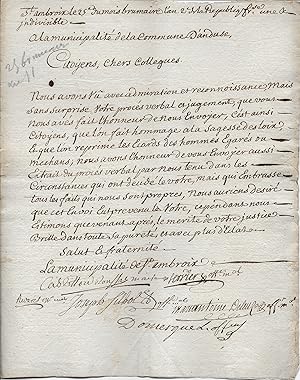 St ambroix le 25e du mois brumaire l'an 2e de la Republiq. fse. une &
indivisible
25 brumaire
an 11
A la municipalité de la Commune Danduse,
Citoyens, chers Collegues
Nous avons Vu avec admiration et reconnoissance, Mais
sans surprise Votre procès verbal et jugement, que vous
Nous avés fait l'honneur de Nous Envoyer, C'est ainsi
Citoyens, que l'on fait hommage a la Sagesse des loix
et que l'on reprime les Ecarts des hommes Egarés ou
mechans; nous avons l'honneur de vous Envoyer aussi
Extrait du procès verbal par Nous tenu dans les
Circonstances qui ont decidé le votre, mais qui Embrasse
tous les faits qui nous sont propres, Nous aurions desiré
que cet Envoi Eut prevenu le Votre, cependant nous
Estimons que venant après, le merite de votre justice
Brille dans toute sa pureté, et avec plus d'Eclat
Salut & fraternité
La municipalité de St. ambroix
maire
off. m.
Joseph Silhol offi
offi m
Domergue offi